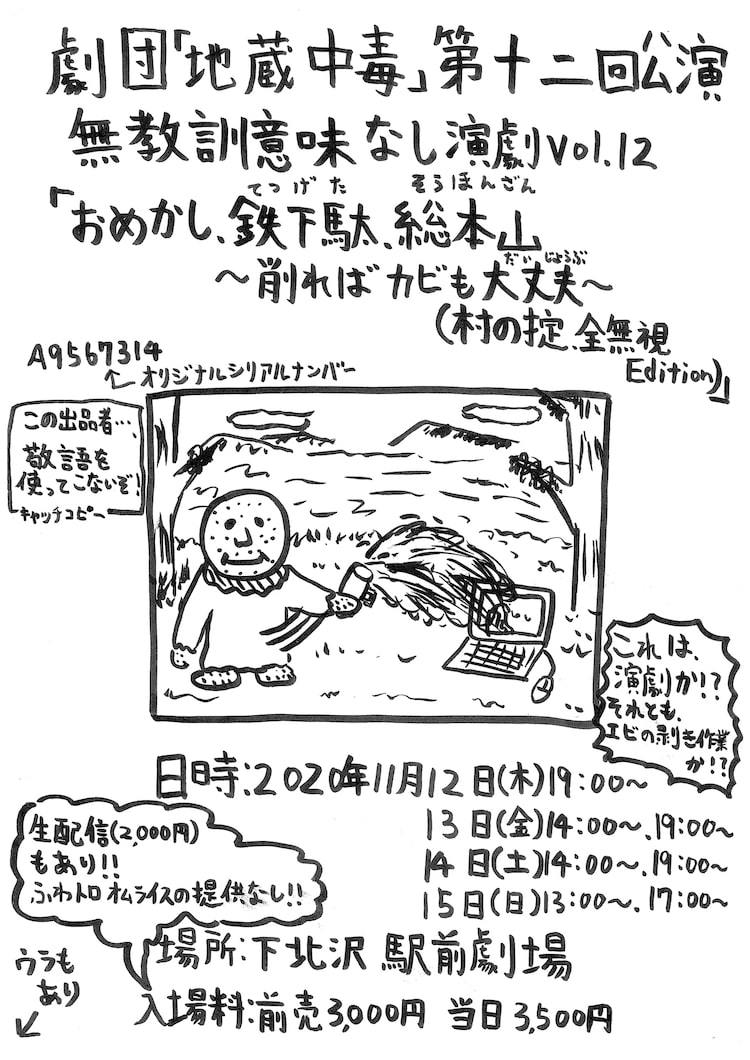 劇団「地蔵中毒」第十二回公演
無教訓意味なし演劇vol.12
てつげた そうほんざん
「おめかし、鉄下駄、総本山
だいじょうぶ
〜削ればカビも大丈夫〜
(村の掟、全無視
Edition)」
A9567314
オリジナルシリアルナンバー
この出品者…、
敬語を
使ってこないぞ!
キャッチコピー
これは、
演劇か!?
それとも、
エビの剥き作業
か!?
日時:2020年11月12日(木)19:00〜
13日(金)14:00〜、19:00〜
14日(土)14:00〜、19:00〜
15日(日)13:00〜、17:00〜
生配信(2,000円)
もあり!!
ふわトロオムライスの提供なし!!
場所:下北沢 駅前劇場
ウラも
あり
入場料:前売3,000円 当日3,500円